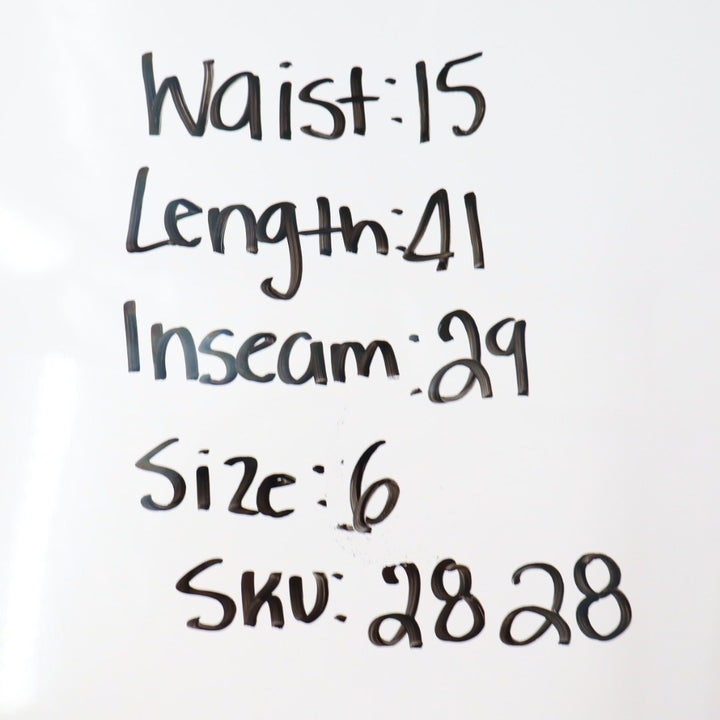 Waist:15
Length:41
Inseam:29
Size:6
SKU:2828